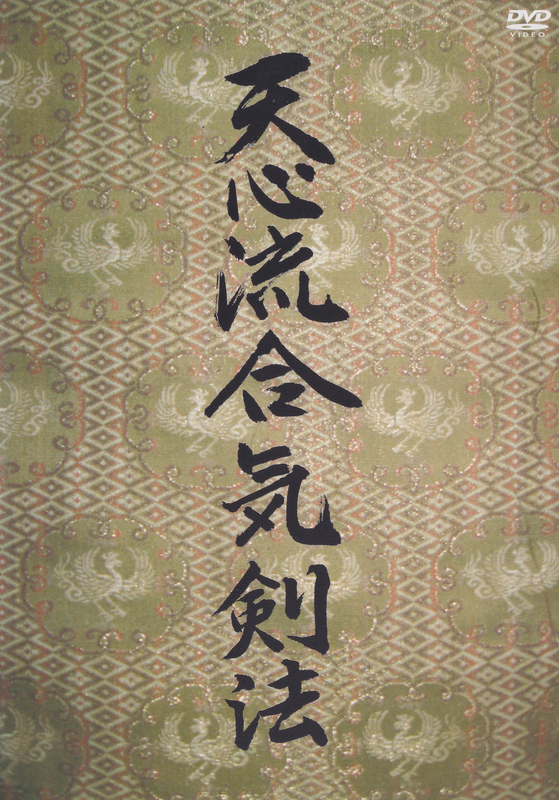 DVD
VIDEO
天心流合気剣法